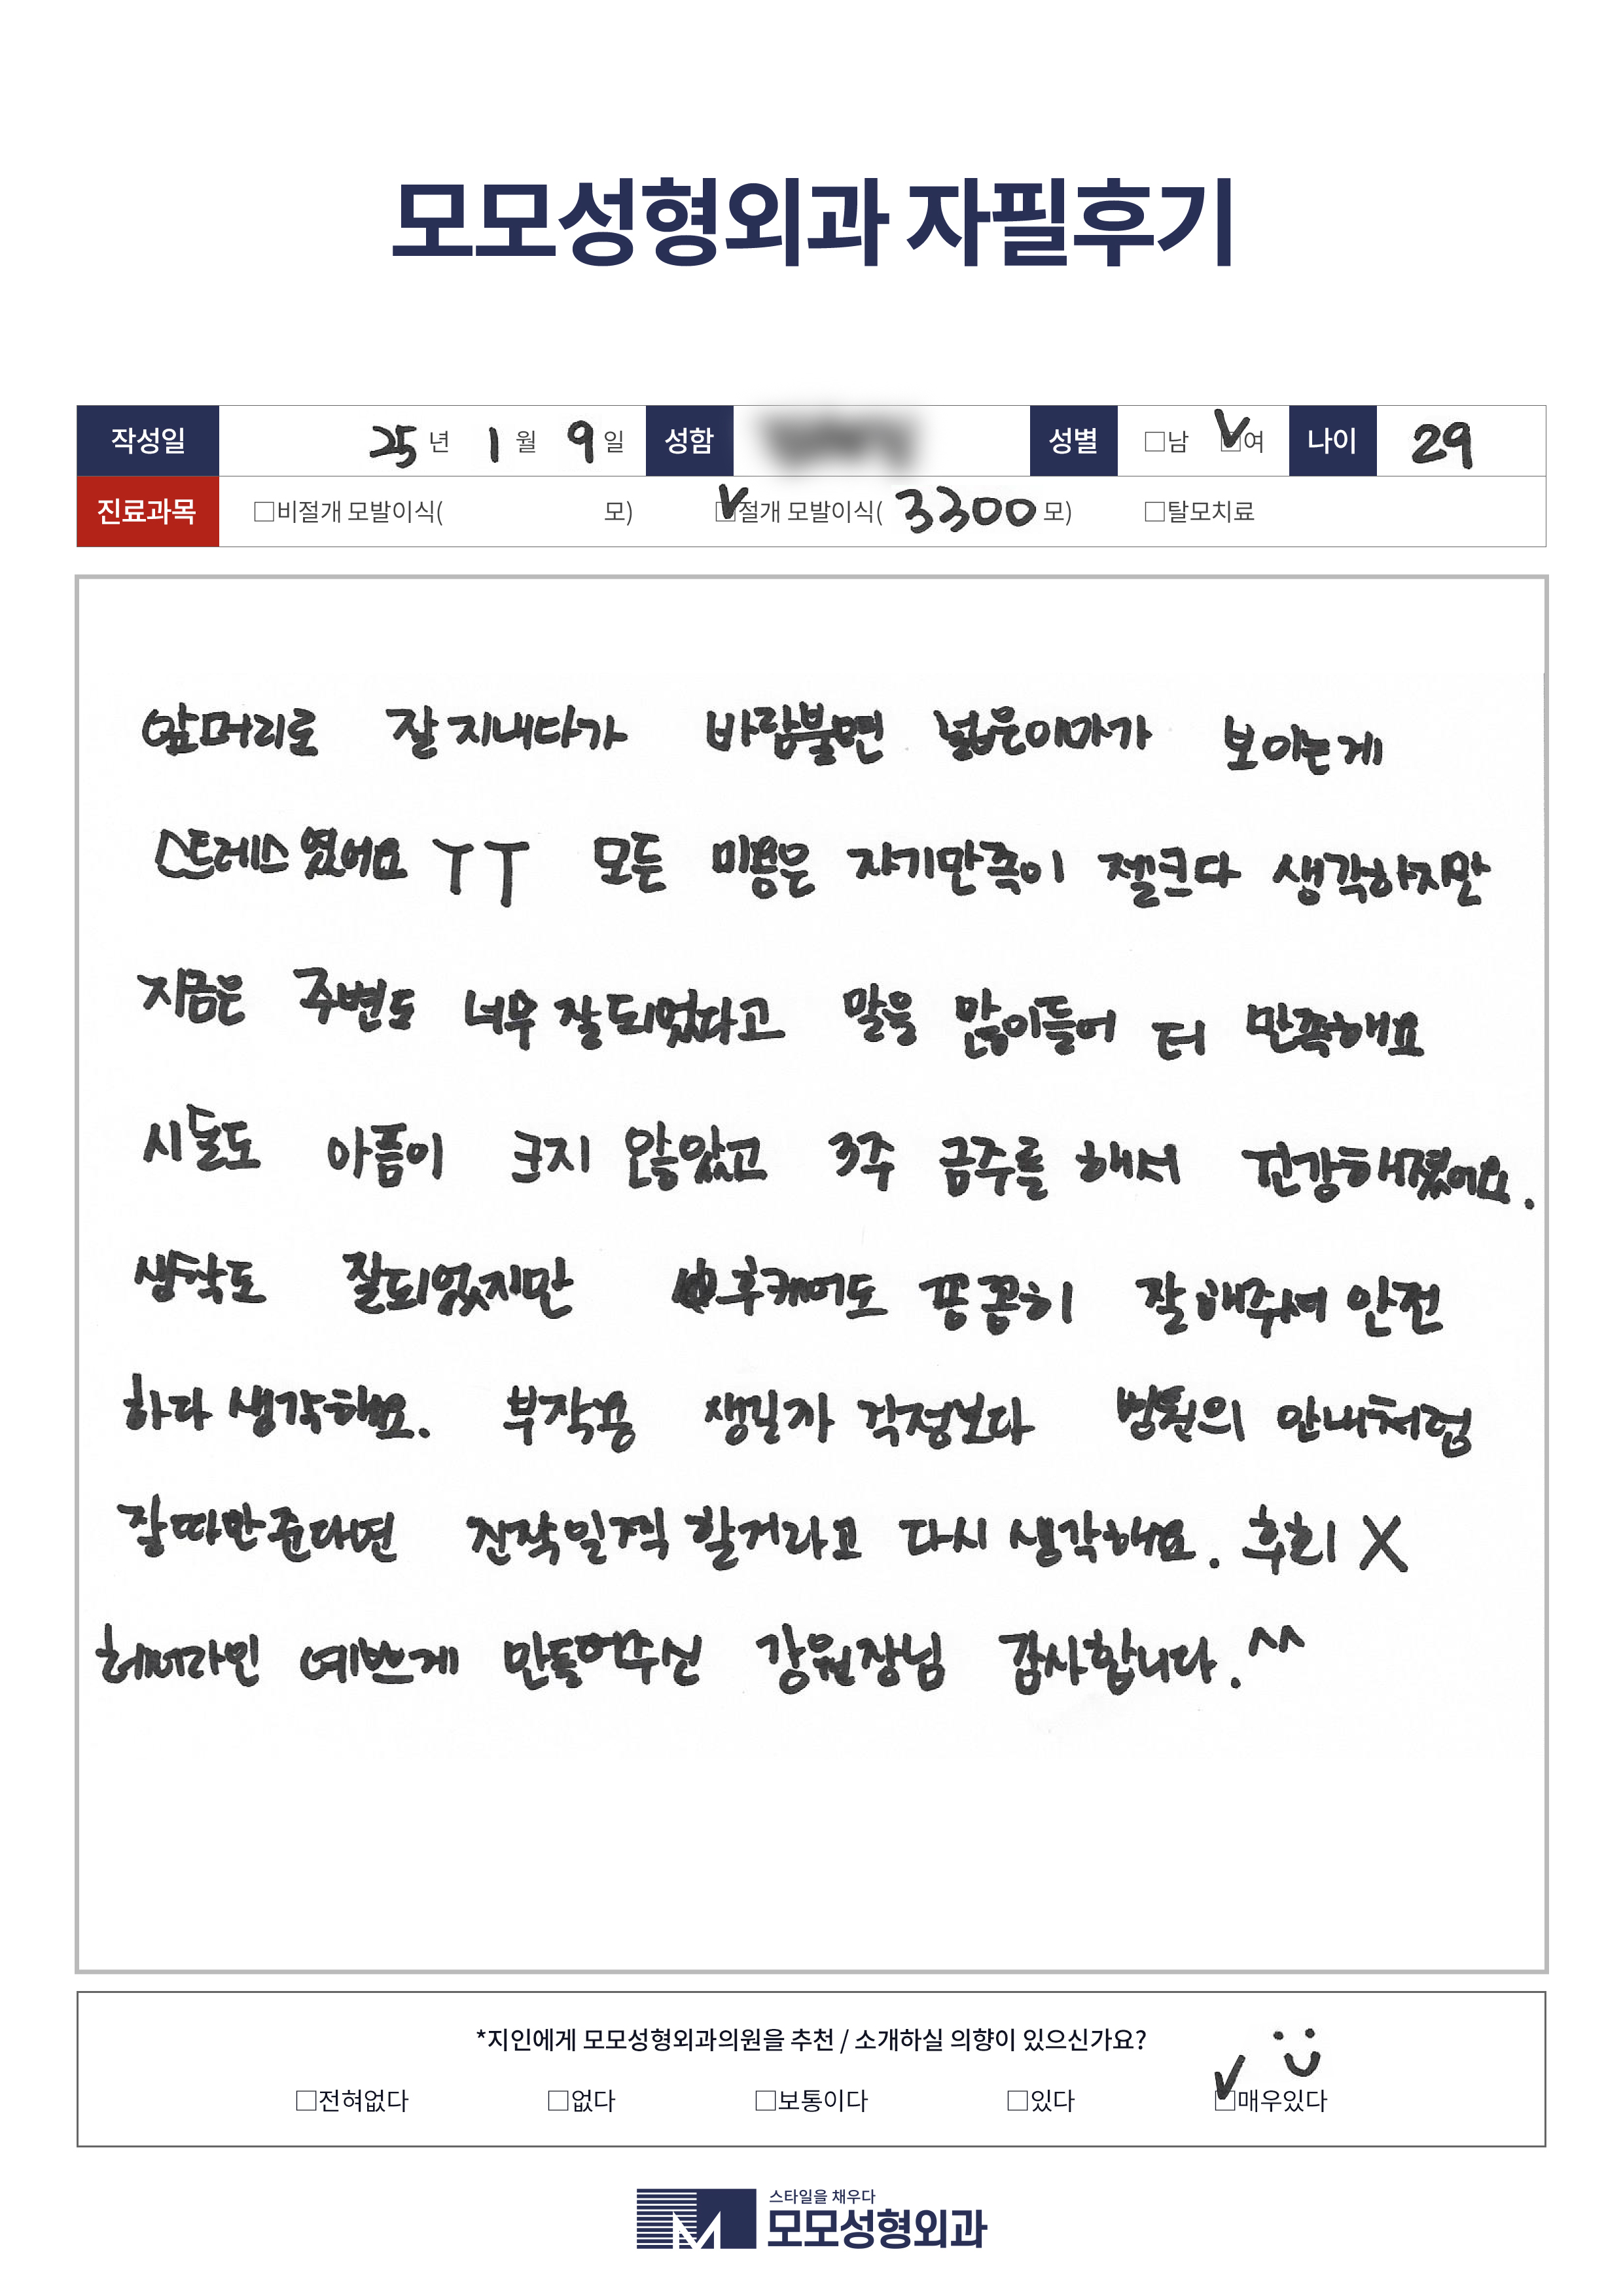 모모성형외과 자필후기
작성일 25년 1월 9일 성함 성별 □남 ☑여 나이 29
진료과목 □비절개 모발이식( 모) ☑절개 모발이식( 3300 모) □탈모치료
앞머리로 잘 지내다가 바람불면 넓은이마가 보이는게
스트레스였어요 ㅜㅜ 모든 미용은 자기만족이 젤크다 생각하지만
지금은 주변도 너무 잘되었다고 말을 많이들어 더 만족해요
시술도 아픔이 크지 않았고 3주 금주를 해서 건강해졌어요.
생착도 잘되었지만 후케어도 꼼꼼히 잘해주셔 안전
하다 생각해요. 부작용 생길까 걱정보다 병원의 안내처럼
잘따만준다면 진작일찍 할거라고 다시 생각해요. 후회 X
헤어라인 예쁘게 만들어주신 강원장님 감사합니다. ^^
*지인에게 모모성형외과의원을 추천 / 소개하실 의향이 있으신가요?
□전혀없다 □없다 □보통이다 □있다 ☑매우있다
스타일을 채우다
모모성형외과